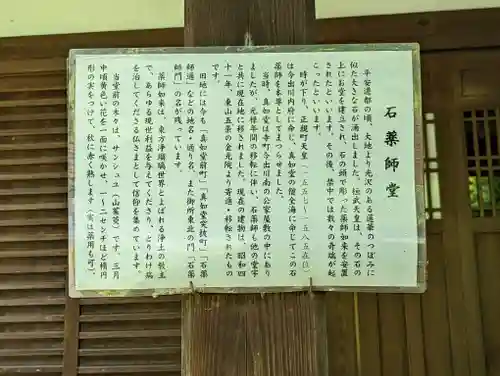 石薬師堂
平安遷都の頃、大地より光沢のある蓮華のつぼみに
似た大きな石が湧出しました。桓武天皇は、その石
上にお堂を建立され、石の頭で彫った薬師如来を安置
されたといいます。その後、禁中では数々の奇瑞が起
こったといいます。
時が下り、正親町天皇(一五五七~一五八五在位)
は今出川内府に命じ、真如堂の僧全海に命じてこの石
薬師を本尊としてまつらせました。
当時、真如堂は寺町今出川南の公家屋敷の中にあり
ましたが、元禄年間の移転に伴い、石薬師も他の堂宇
と共に現在地に移されました。現在の建物は、昭和四
十一年、東山五条の金光院より寄進・移転されたもの
です。
旧地には今も「真如堂前町」「真如堂突抜町」「石薬
師通」などの地名・通り名、また御所東北の門「石薬
師門」の名が残っています。
薬師如来は、東方浄瑠璃世界とよばれる浄土の教主
で、あらゆる現世利益を与えてくださり、とりわけ病
を治してくださる仏さまとして信仰を集めています。
当堂前の木々は、サンシュユ(山茱萸)です。三月
中頃黄色い花を一面に咲かせ、一~二センチほど楕円
形の実をつけて、秋に赤く熟します(実は薬用も可)。